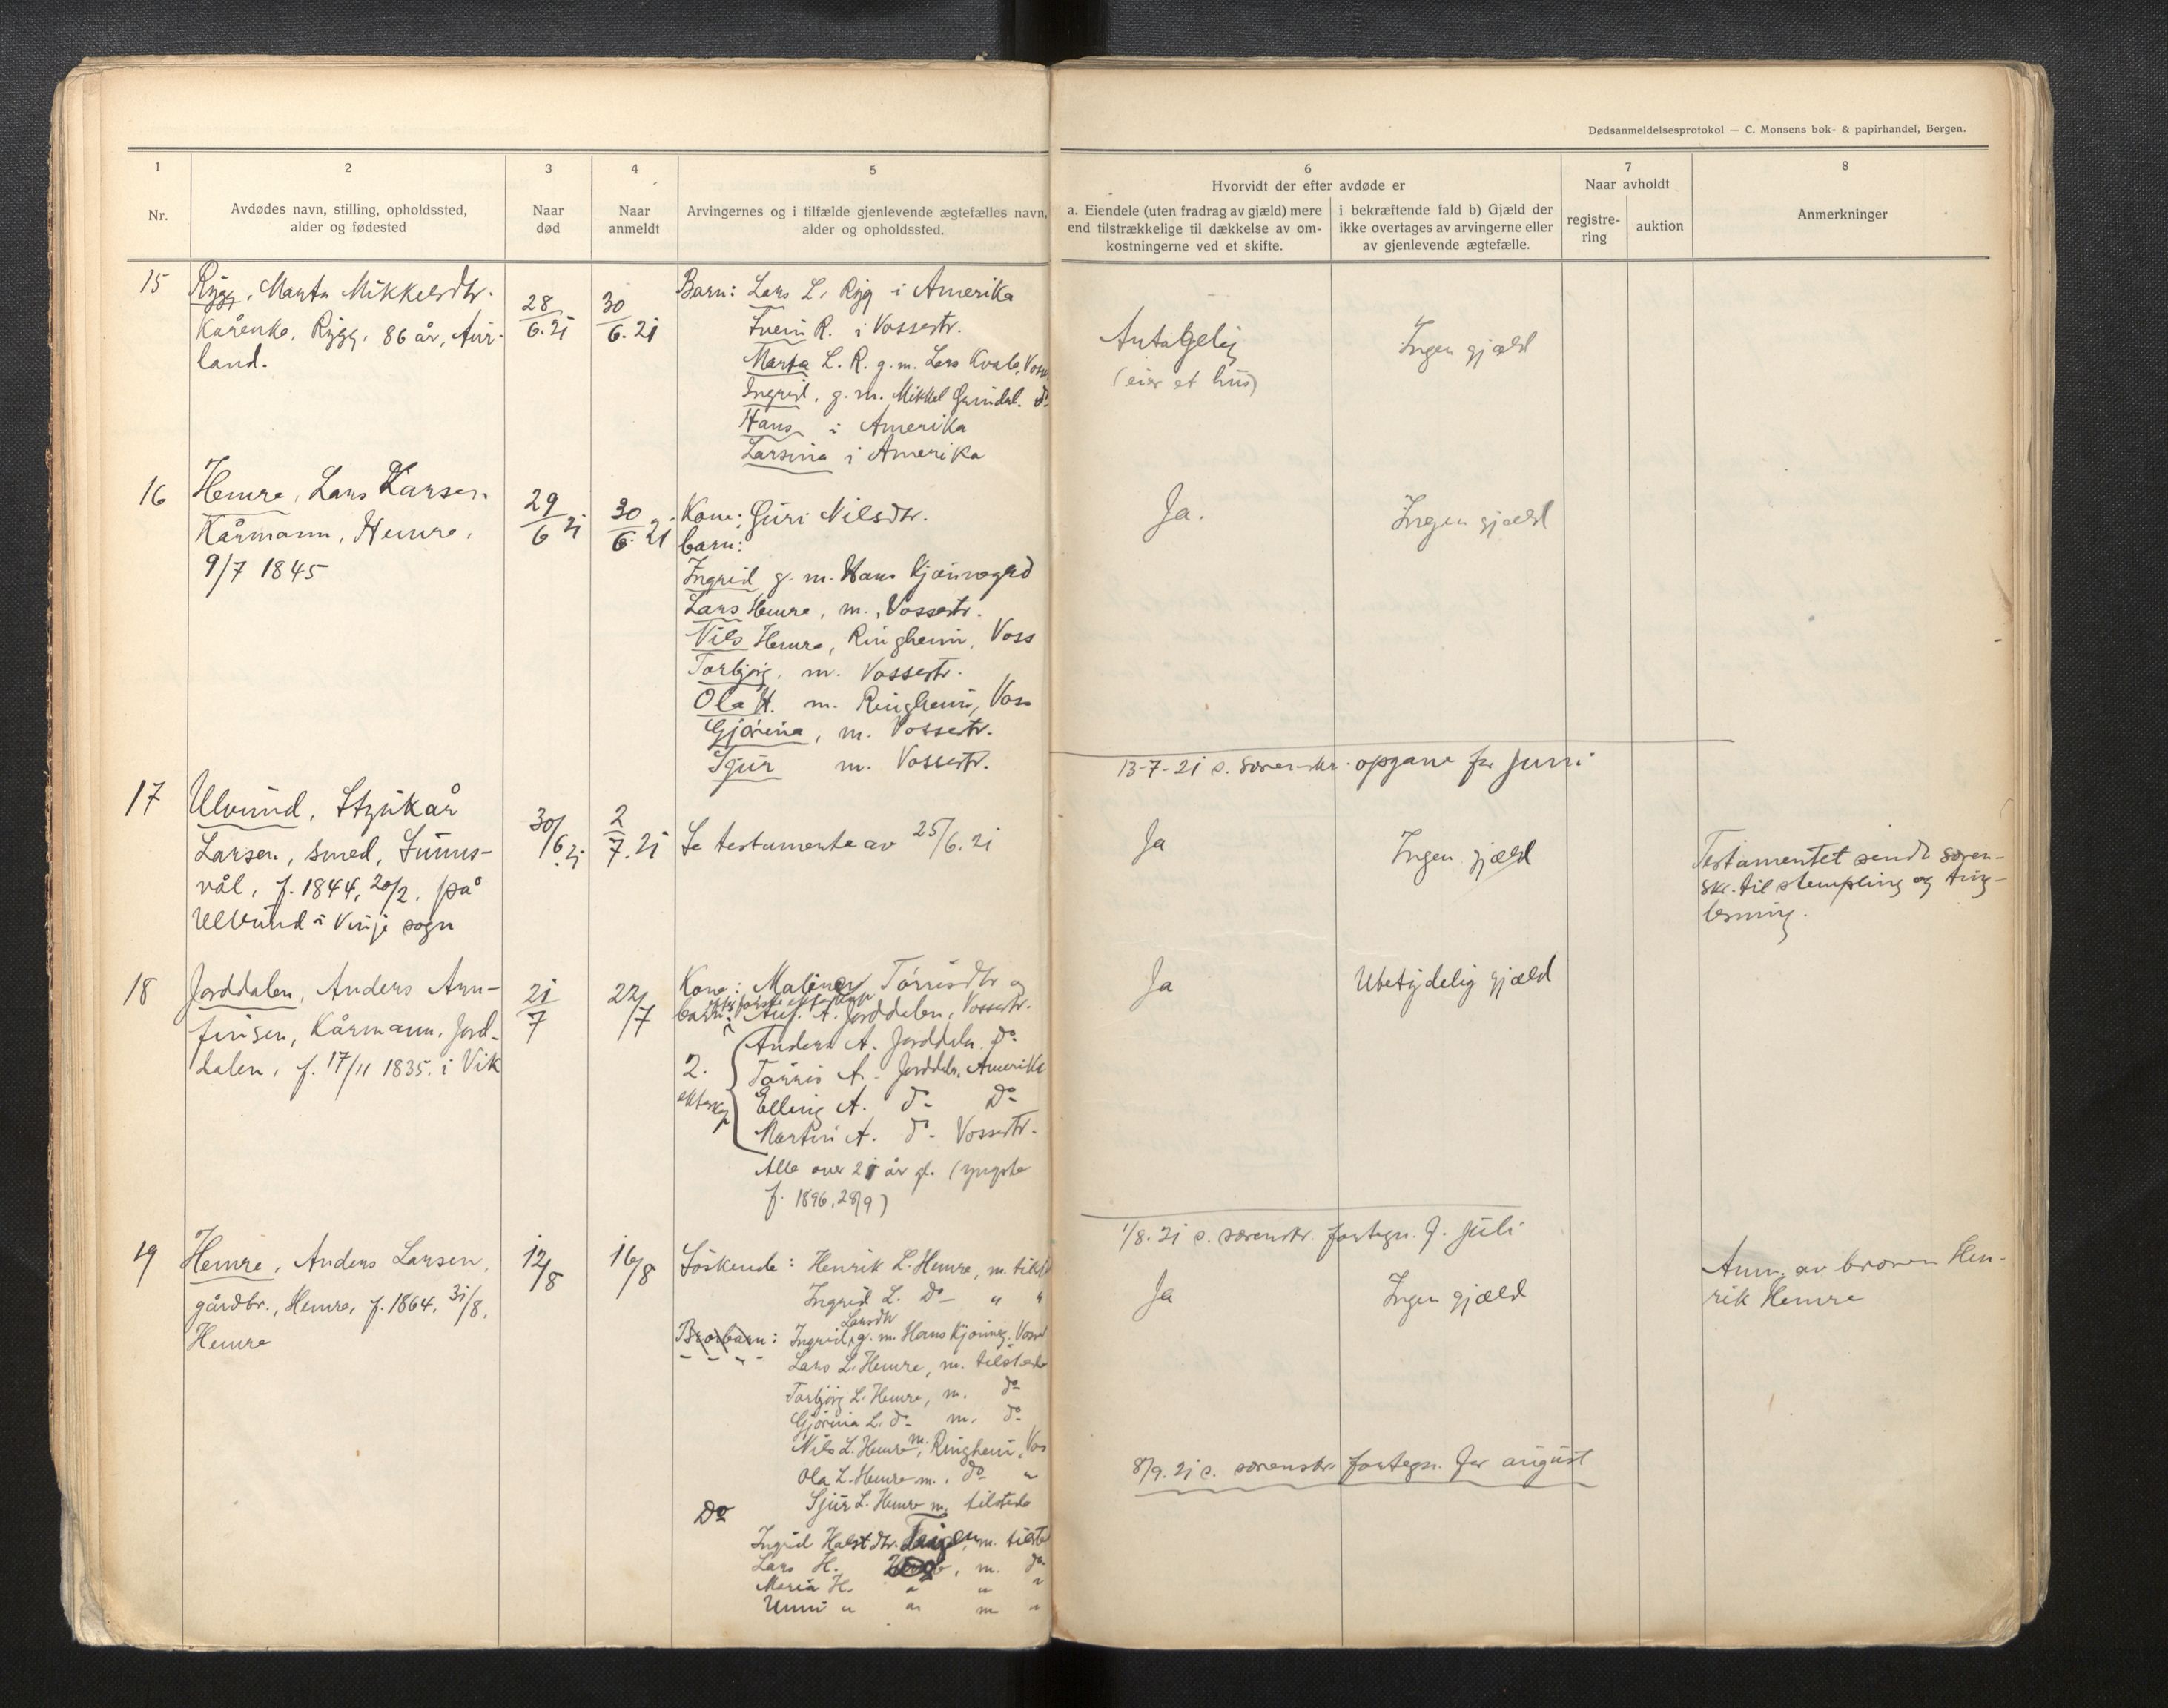 Dødsanmeldelsesprotokol — C. Monsens bok- & papirhandel, Bergen.
1
2
3
4
5
6
7
8
Nr.
Avdødes navn, stilling, opholdssted,
alder og fødested
Naar
død
Naar
anmeldt
Arvingernes og i tilfælde gjenlevende ægtefælles navn,
alder og opholdssted.
Hvorvidt der efter avdøde er
a. Eiendele (uten fradrag av gjæld) mere
end tilstrækkelige til dækkelse av om-
kostningerne ved et skifte.
i bekræftende fald b) Gjæld der
ikke overtages av arvingerne eller
av gjenlevende ægtefælle.
Naar avholdt
registre-
ring
auktion
Anmerkninger
15
Rygg, Marta Mikkelsdtr.
Kårenke, Rygg, 86 år, Aur-
land.
28/6.21
30/6.21
Barn: Lars L. Ryg i Amerika
Svein R. i Vossestr.
Marta L. R. g. m. Lars Kvale, Voss
Ingrid, g. m. Mikkel do
Hans i Amerika
Larsina i Amerika
Antagelig
(eier et hus)
Ingen gjæld
16
Hemre, Lars Larsen
Kårmann, Hemre,
9/7 1845
29/6 21
30/6.21
Kone: Guri Nilsdtr.
barn:
Ingrid g. m. Hans
Lars Hemre, m., Vossestr.
Nils Hemre, Ringheim, Voss
Torbjørg, m. Vossestr.
Ola H. m. Ringheim, Voss
Gjørina, m. Vossestr.
Sjur m. Vossestr.
Ja.
Ingen gjæld
13-7-21 s. soren-skr. opgave for Juni
17
Ulvund, Styrkår
Larsen, smed,
f. 1844, 20/2, på
Ulvund i Vinje sogn
30/6.21
2/7.21
Se testamente av 25/6.21
Ja
Ingen gjæld
Testamentet sendt soren-
skr. til stempling og ting-
lesning.
18
Jorddalen, Anders Arn-
finsen, Kårmann, Jord-
dalen, f. 17/11 1835, i Vik
21/7
22/7
Kone: Torrisdtr og
barn: A. Jorddalen, Vossestr.
2.
ektesk.
Anders A. Jorddalen. do
Torris A. Jorddaln. Amerika
Elling A. do do
Martin A. do Vossestr.
Alle over 21 år gl. (yngste
f. 1896, 28/9)
Ja
Ubetydelig gjæld
1/8.21 s. sorenskr. fortegn. f. juli
19
Hemre, Anders Larsen,
gårdbr., Hemre, f. 1864, 31/8,
Hemre
12/8
16/8
Søskende: Henrik L. Hemre, m. tilst
Ingrid L. Do " "
Brorbarn: Ingrid Larsdtr g. m. Hans
Lars L. Hemre, m. tilstede
Torbjørg L. Hemre, m. do
Gjørina L. do m. do
Nils L. Hemre m., Ringheim, Vos
Ola L. Hemre m., do "
Sjur L. Hemre m. tilstede
Do
Ingrid Halstdtr. Teigen, m. tilste
Lars H. m. do
Maria H. " " "
Unni " " m "
Ja
Ingen gjæld
Anm. av broren Hen-
rik Hemre
8/9.21 s. sorenskr. fortegn. for august